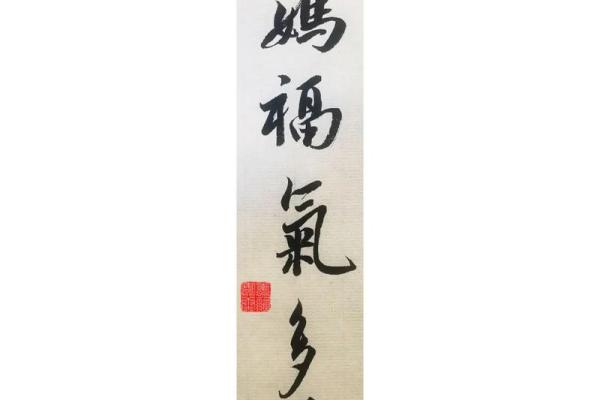 媽福氣多